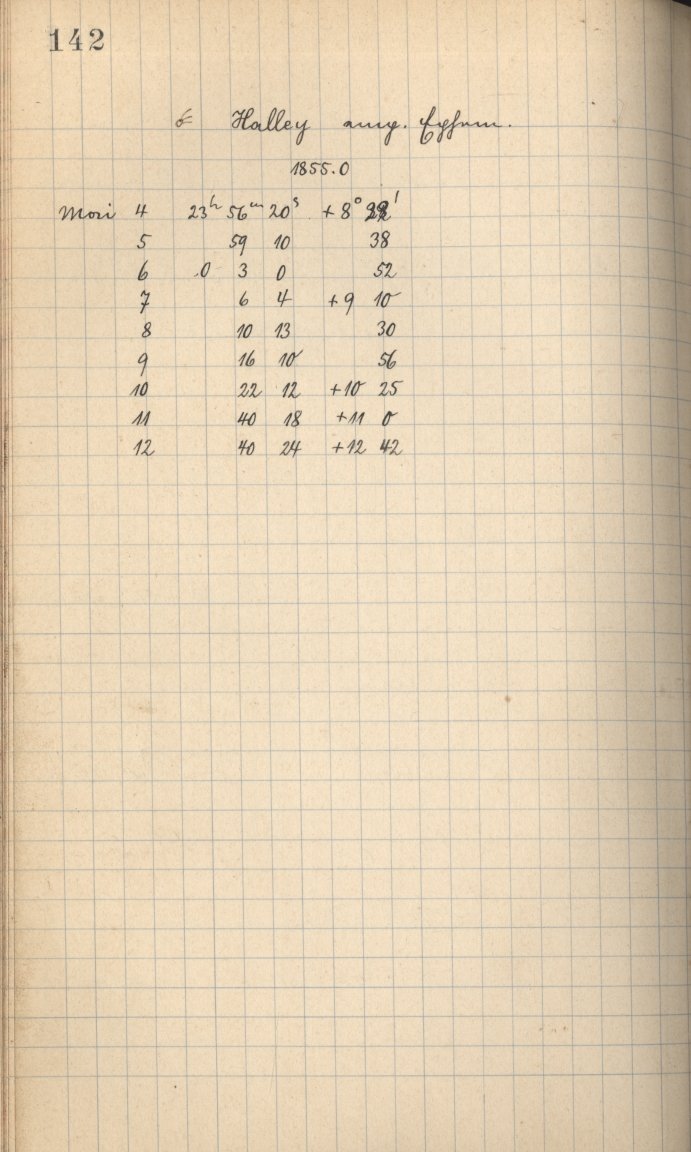 142
☄ Halley ang. Ephem.
1855.0
Mai 4 23h 56m 20s +8° 28'
5 59 10 38
6 0 3 0 52
7 6 4 +9 10
8 10 13 30
9 16 10 56
10 22 12 +10 25
11 40 18 +11 0
12 40 24 +12 42